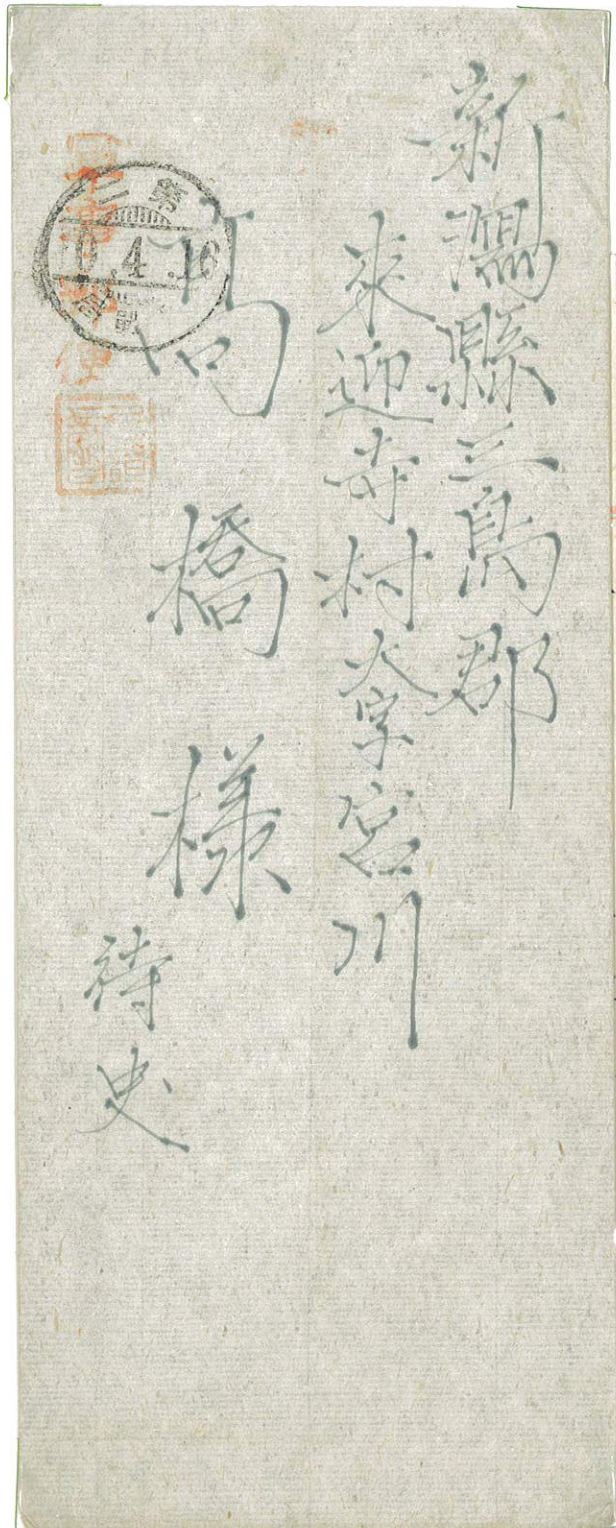 新潟縣三島郡
來迎寺村大字宮川
高橋様
侍史
9.4.16